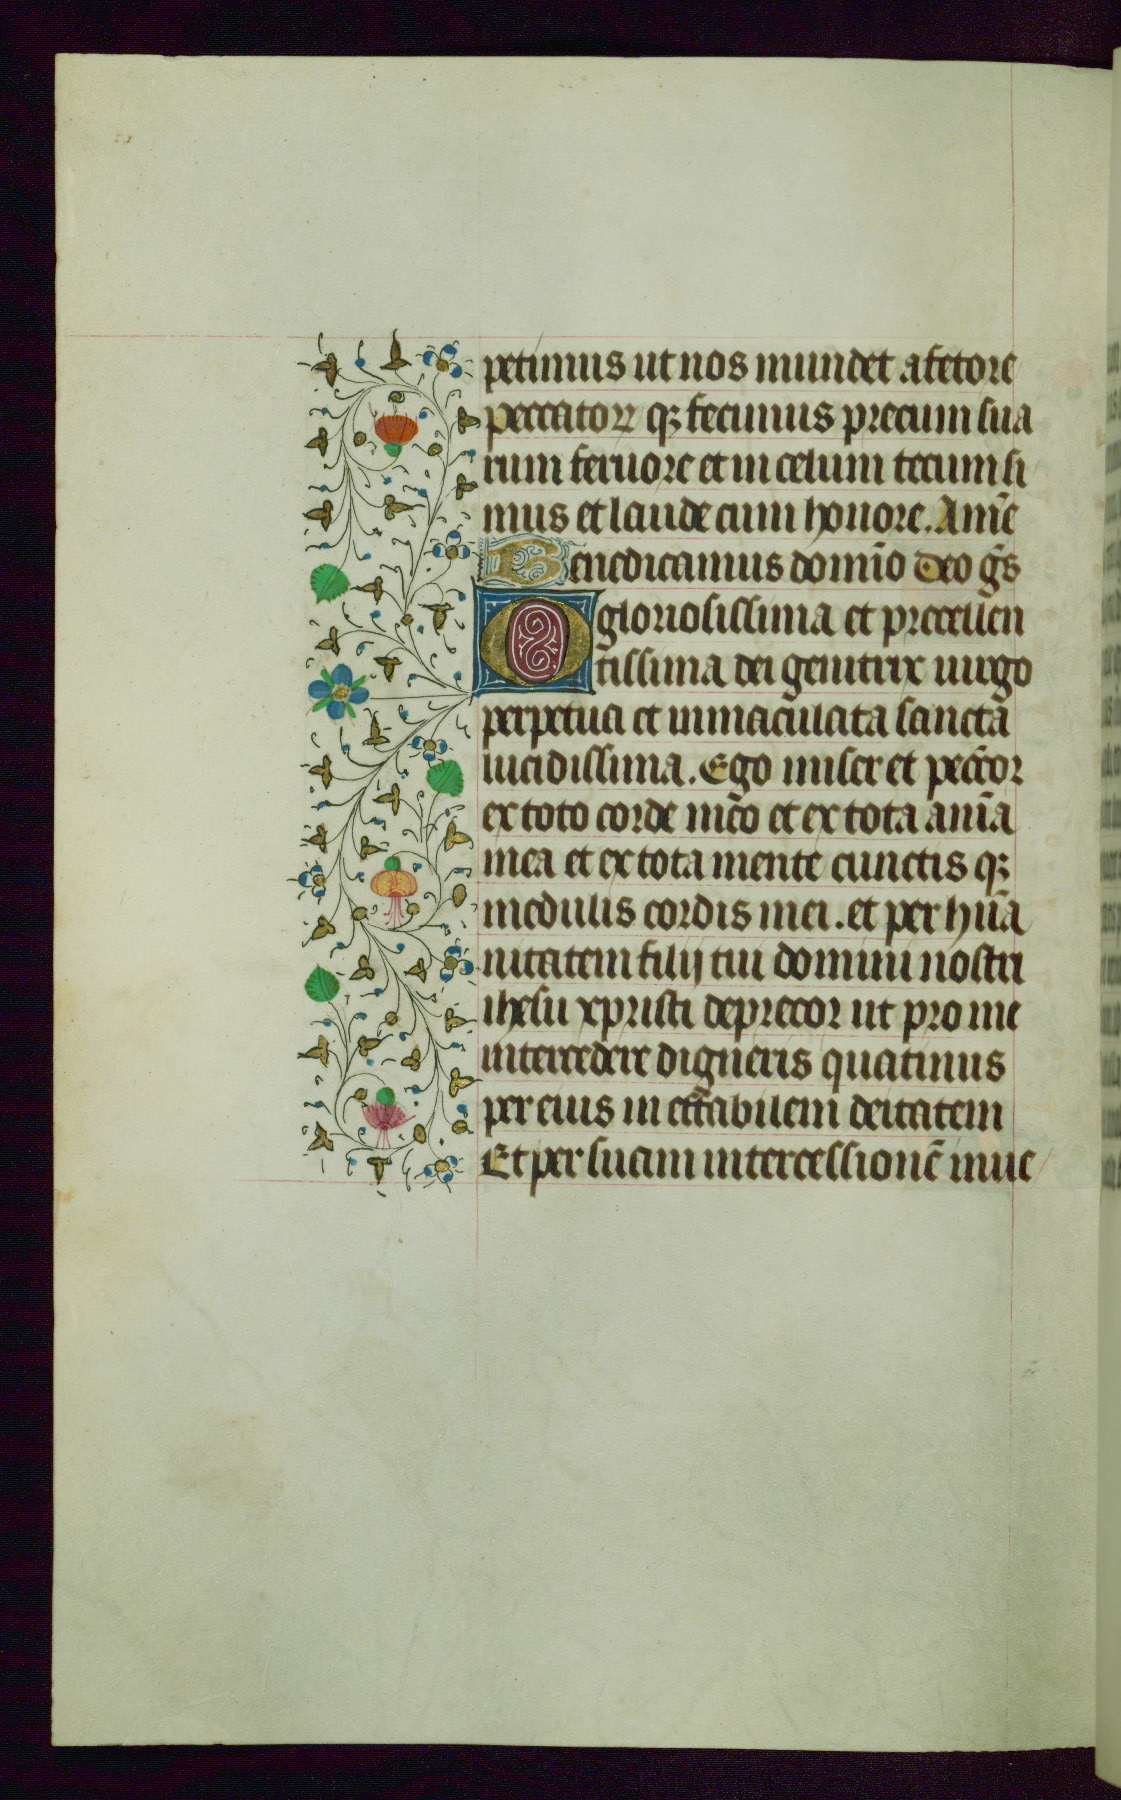 petimus ut nos mundet a fetore
peccatoꝝ qꝫ fecimus precum sua
rum feruore et in celum tecum si
mus et laude cum honore. Amē
Benedicamus domīo Deo gr̄s
O gloriosissima et precellen
tissima dei genitrix uirgo
perpetua et inmaculata sancta
lucidissima. Ego miser et pecc̄or
ex toto corde meo et ex tota anīa
mea et ex tota mente cunctis qꝫ
medulis cordis mei. et per hūa
nitatem filij tui domini nostri
ihesu xpristi deprecor ut pro me
intercedere digneris quatinus
per eius in effabilem deitatem
Et per suam intercessionē inue